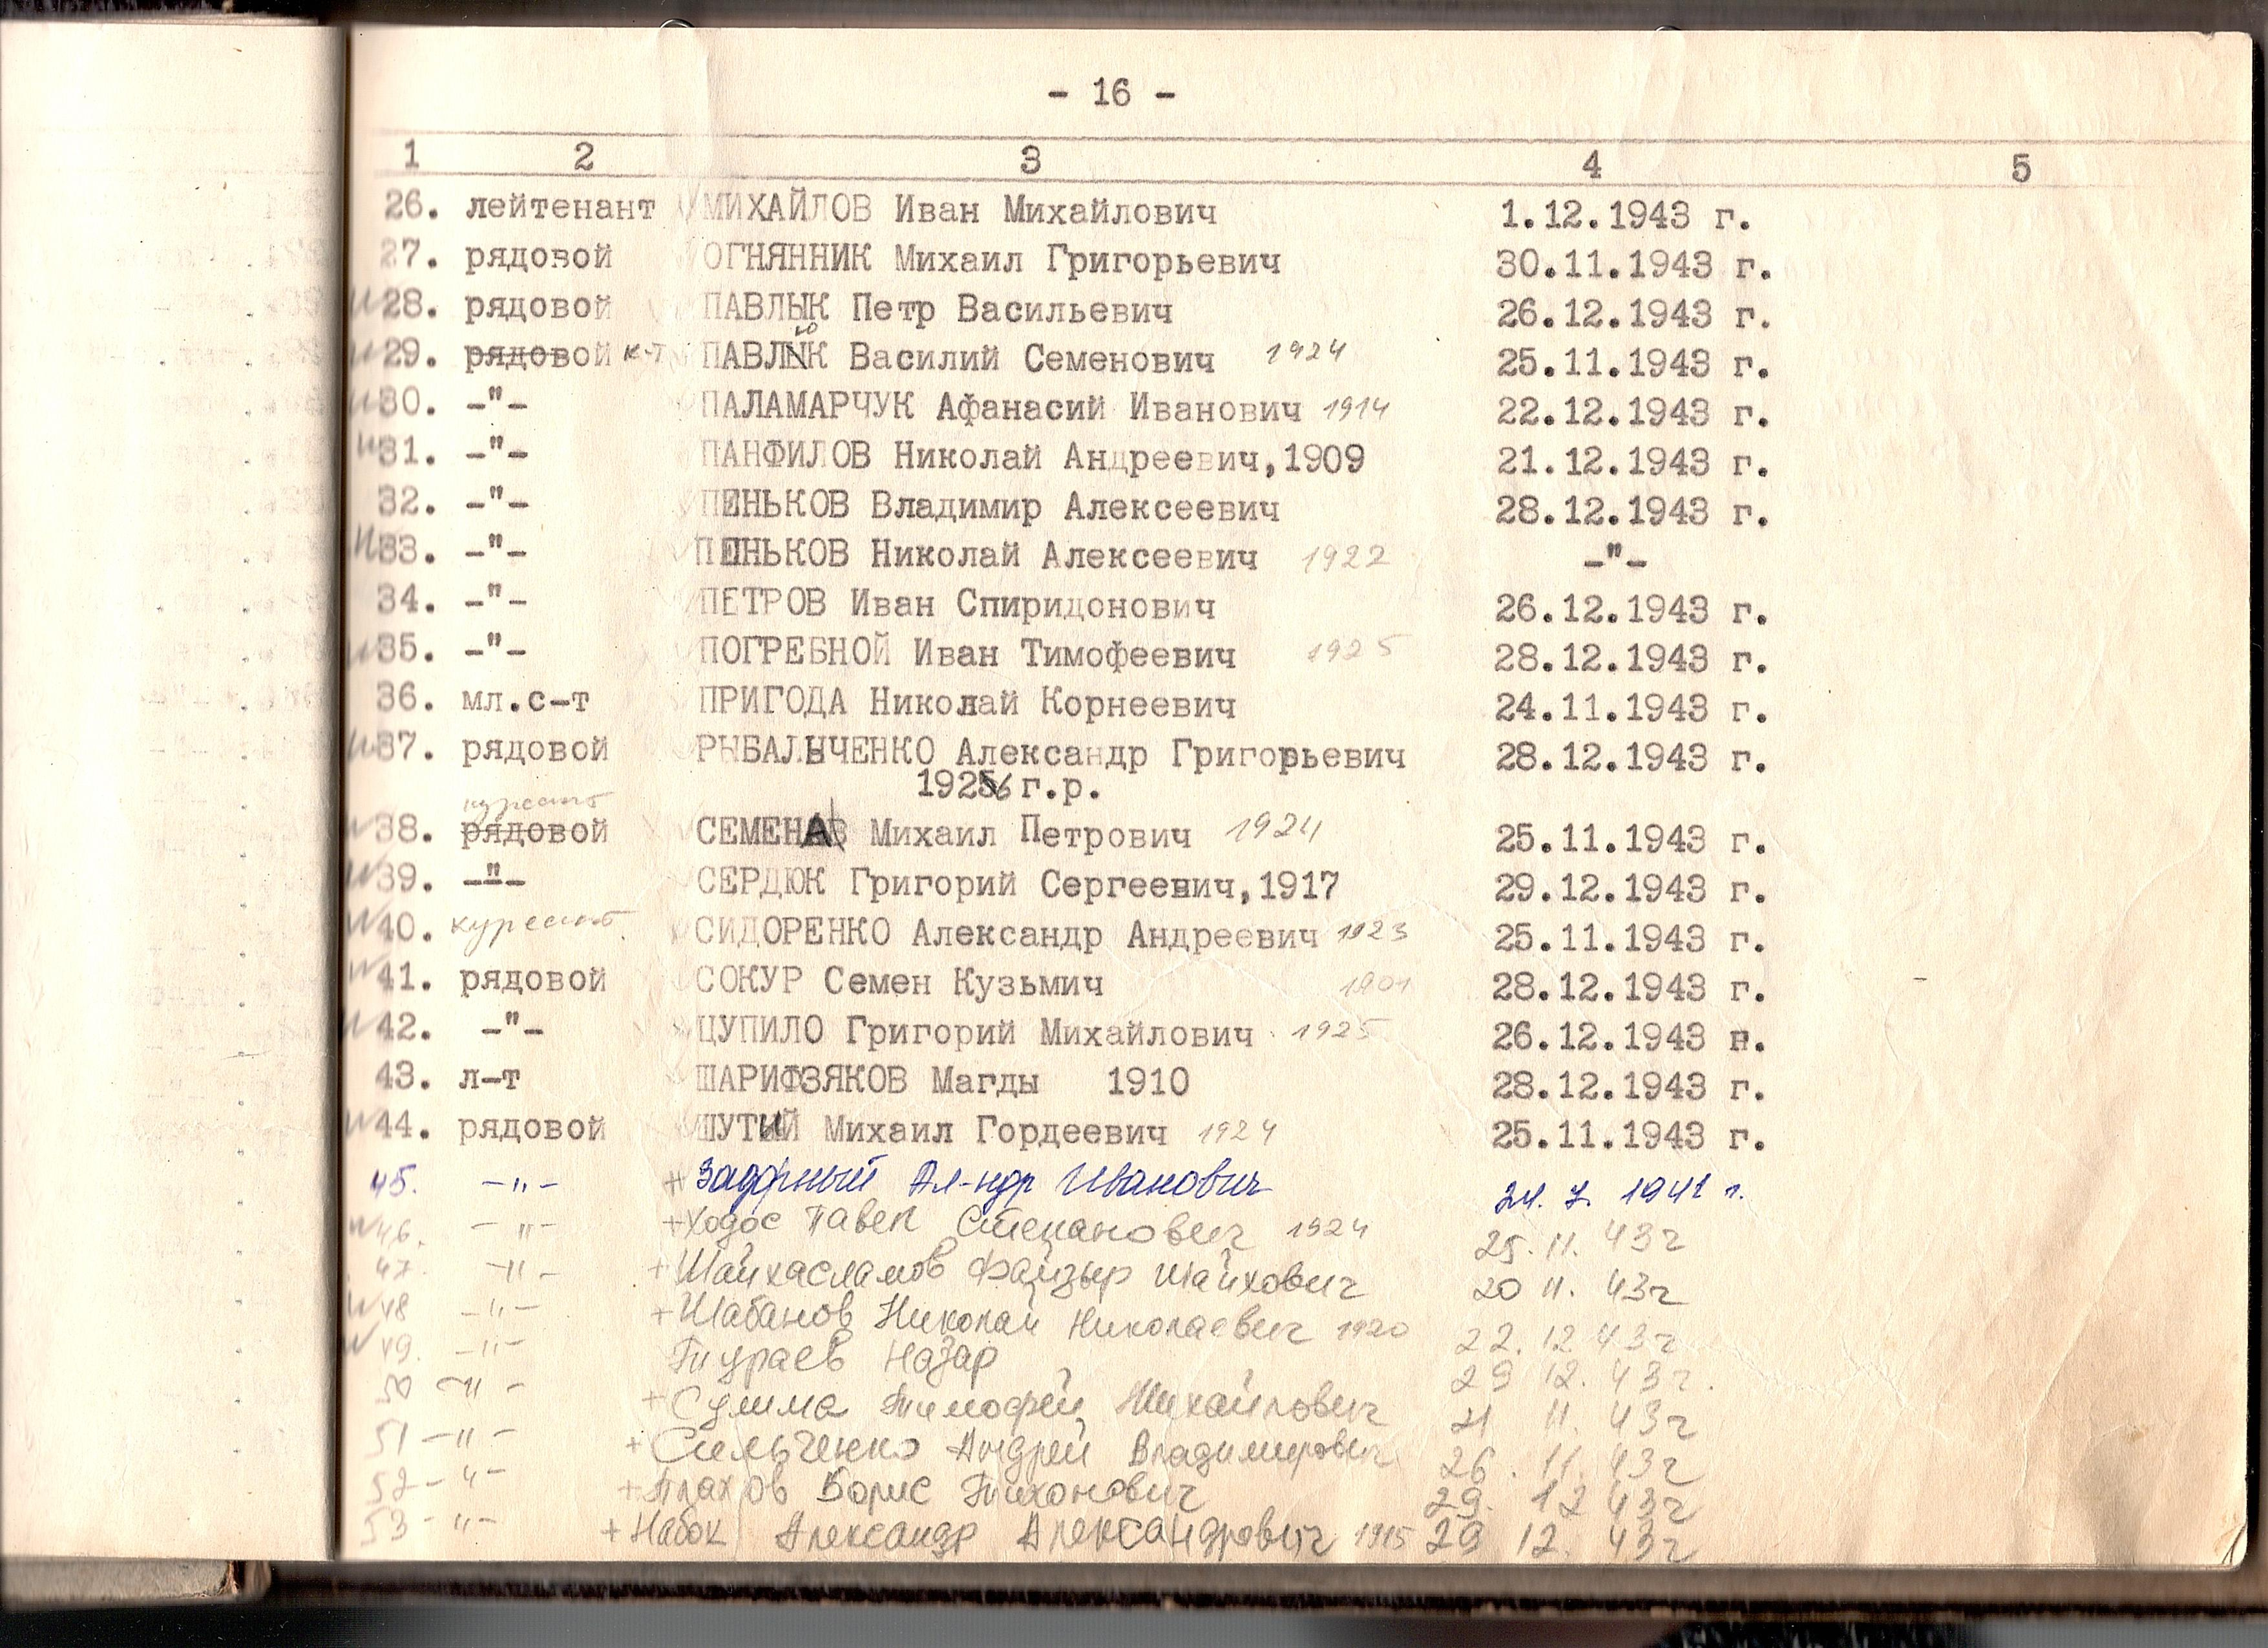 - 16 -
1 2 3 4 5
26. лейтенант МИХАЙЛОВ Иван Михайлович 1.12.1943 г.
27. рядовой ОГНЯННИК Михаил Григорьевич 30.11.1943 г.
28. рядовой ПАВЛЫК Петр Васильевич 26.12.1943 г.
29. рядовой к-т ПАВЛЮК Василий Семенович 1924 25.11.1943 г.
30. -"- ПАЛАМАРЧУК Афанасий Иванович 1914 22.12.1943 г.
31. -"- ПАНФИЛОВ Николай Андреевич, 1909 21.12.1943 г.
32. -"- ПЕНЬКОВ Владимир Алексеевич 28.12.1943 г.
33. -"- ПЕНЬКОВ Николай Алексеевич 1922 -"-
34. -"- ПЕТРОВ Иван Спиридонович 26.12.1943 г.
35. -"- ПОГРЕБНОЙ Иван Тимофеевич 1925 28.12.1943 г.
36. мл.с-т ПРИГОДА Николай Корнеевич 24.11.1943 г.
37. рядовой РЫБАЛЬЧЕНКО Александр Григорьевич 28.12.1943 г.
1926 г.р.
курсант
38. рядовой СЕМЕНА Михаил Петрович 1924 25.11.1943 г.
39. -"- СЕРДЮК Григорий Сергеевич, 1917 29.12.1943 г.
40. курсант СИДОРЕНКО Александр Андреевич 1923 25.11.1943 г.
41. рядовой СОКУР Семен Кузьмич 1901 28.12.1943 г.
42. -"- ЦУПИЛО Григорий Михайлович 1925 26.12.1943 г.
43. л-т ШАРИФЗЯКОВ Магды 1910 28.12.1943 г.
44. рядовой ШУТИЙ Михаил Гордеевич 1924 25.11.1943 г.
45. -"- + Ал-ндр Иванович 24. 7. 1941 г.
46. -"- + Ходос Павел Степанович 1924 25. 11. 43 г
47. -"- + Шайхасламов Файзыр Шайхович 20 11. 43 г
48 -"- + Шабанов Николай Николаевич 1920 22. 12 43 г
49. -"- Тураев Назар 29 12. 43 г.
50 -"- + Сулима Тимофей Михайлович 11. 43 г
51 -"- + Сильченко Андрей Владимирович 26. 11. 43 г
52 -"- + Плахов Борис Тихонович 29. 12 43 г
53 -"- + Набок Александр Александрович 1915 29 12. 43 г